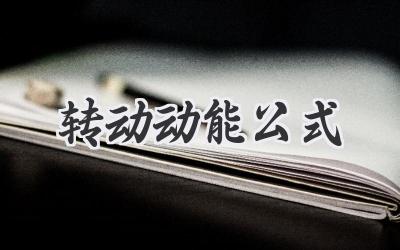 转动动能公式